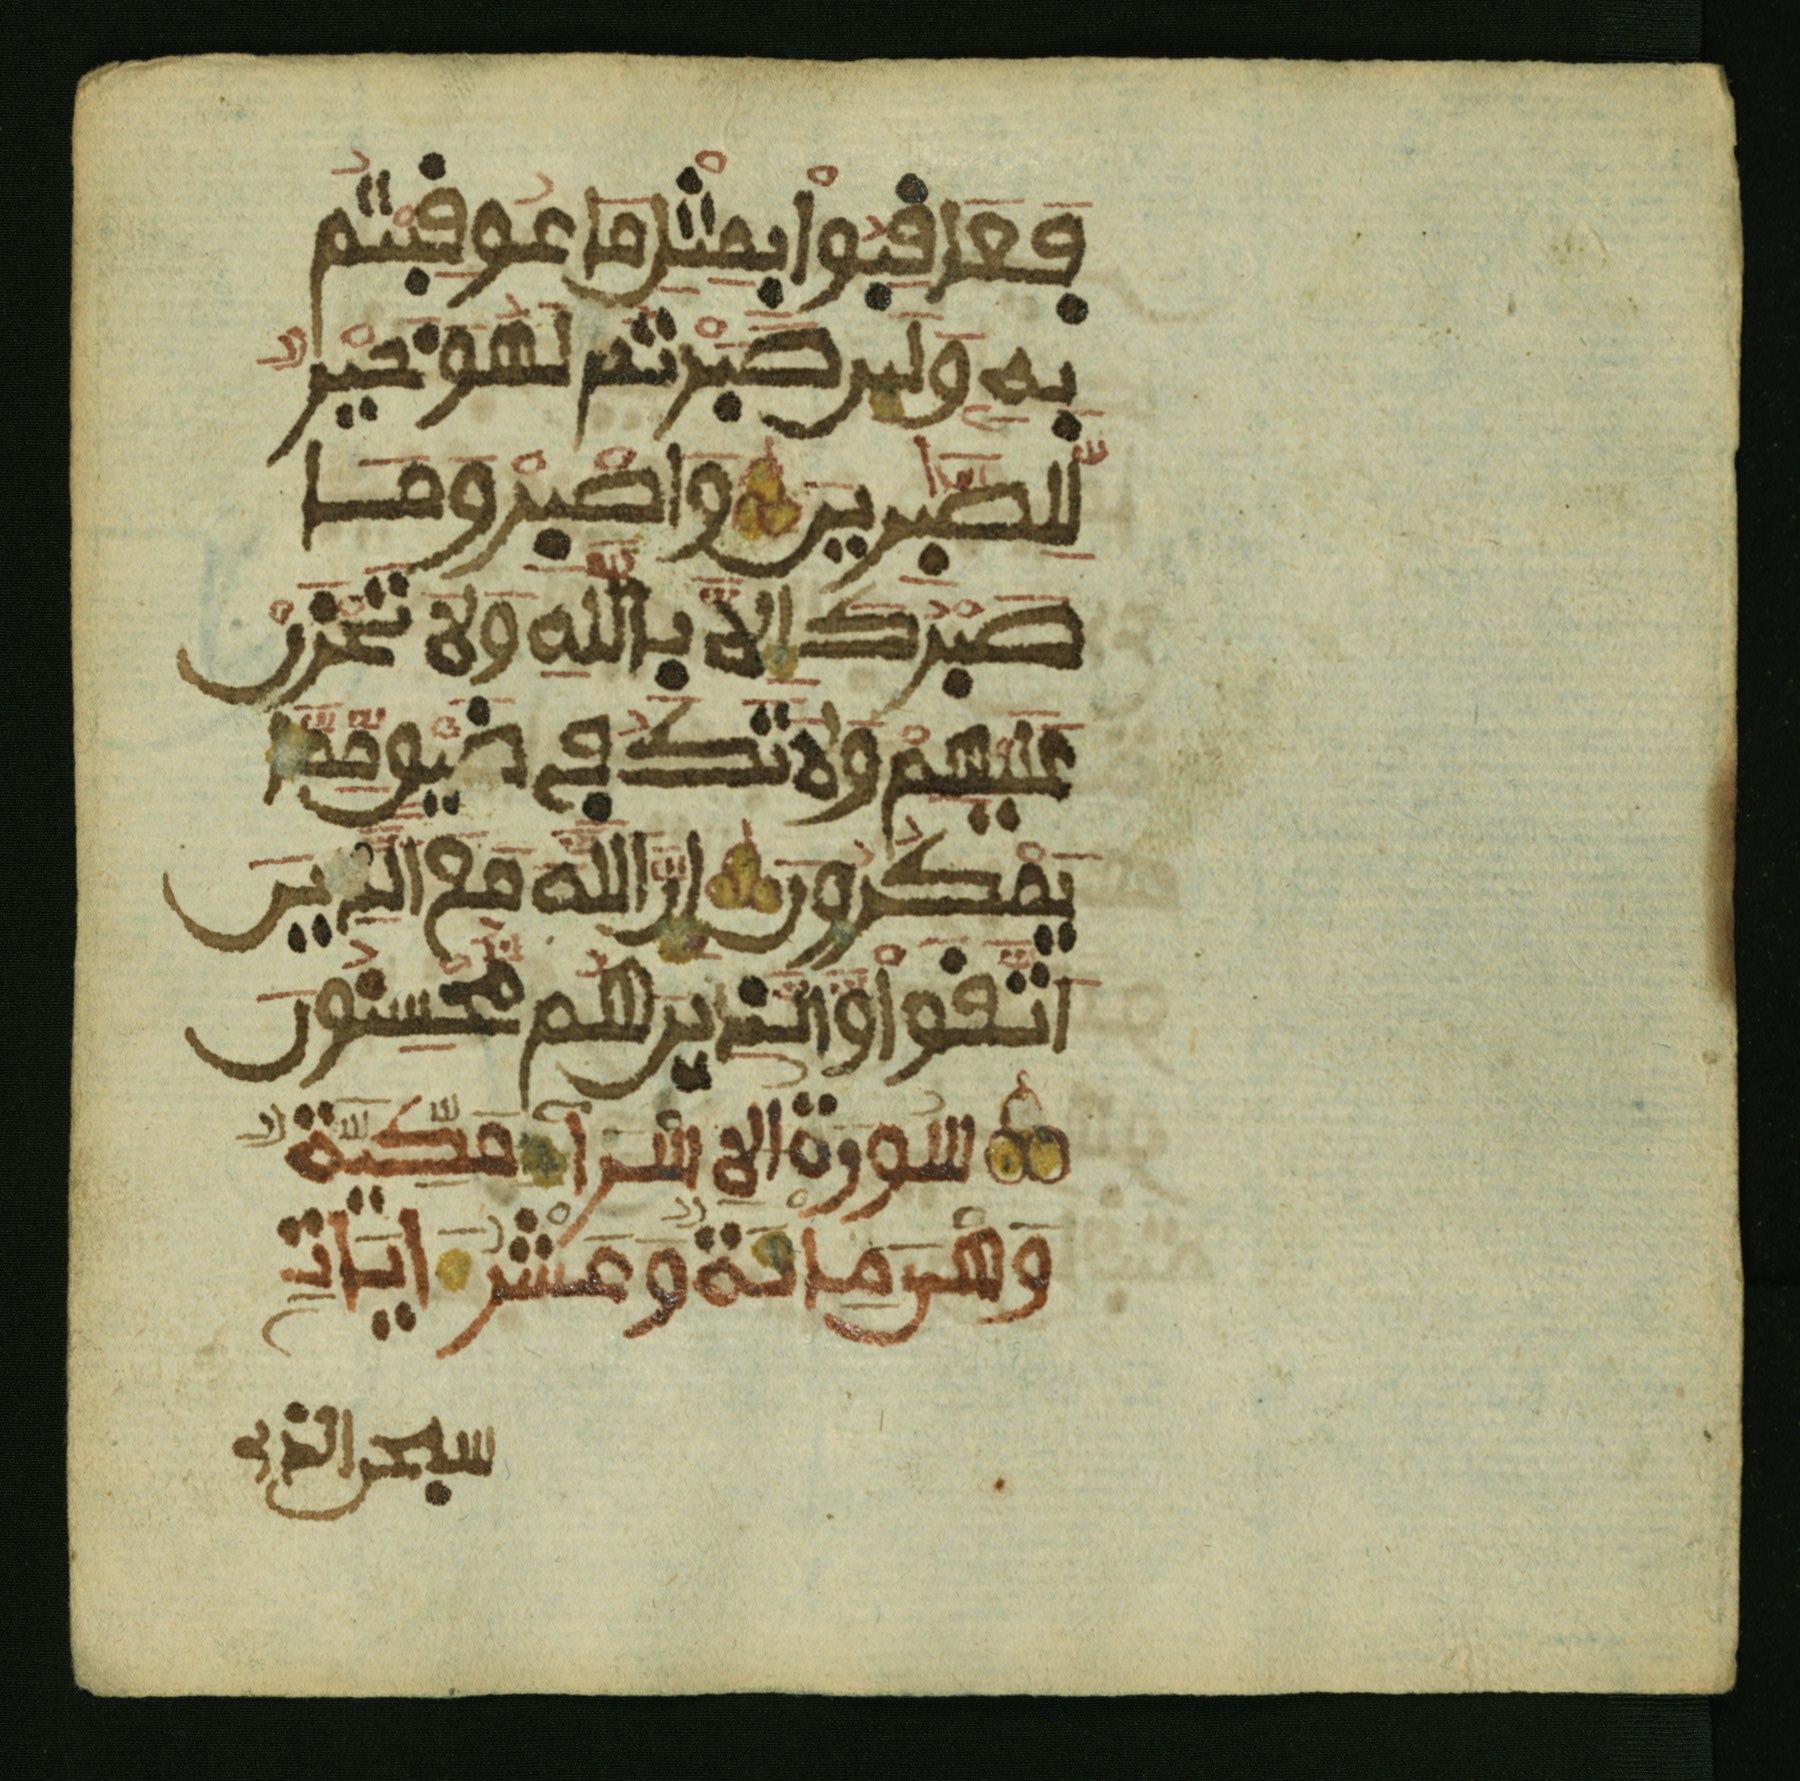 فعاقبوا بمثل ما عوقبتم
به ولين صبرتم لهو خير
للصبرين واصبر وما
صبرك الا بالله ولا تحزن
عليهم ولا تك في ضيق مما
يمكرون ان الله مع الذين
اتقوا والذين هم محسنون
سورة الاسرا مكية
وهي مائة وعشر ايات
سبحن الذي